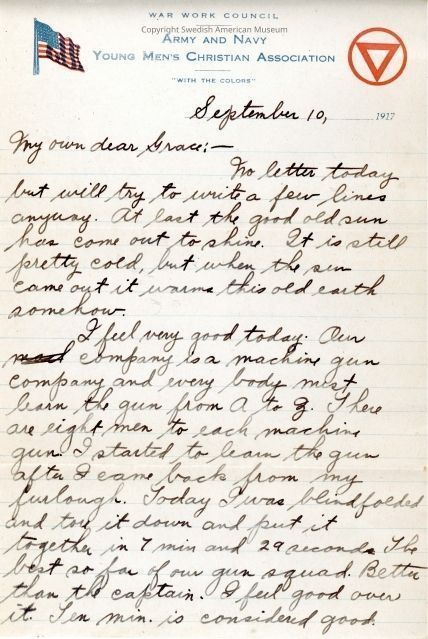 WAR WORK COUNCIL
Copyright Swedish American Museum
ARMY AND NAVY
YOUNG MEN'S CHRISTIAN ASSOCIATION
"WITH THE COLORS"
September 10, 1917
My own dear Grace:—
No letter today
but will try to write a few lines
anyway. At last the good old sun
has come out to shine. It is still
pretty cold, but when the sun
came out it warms this old earth
somehow.
I feel very good today. Our
company is a machine gun
company and every body must
learn the gun from A to Z. There
are eight men to each machine
gun. I started to learn the gun
after I came back from my
furlough. Today I was blindfolded
and tore it down and put it
together in 7 min and 29 seconds. The
best so far of our gun squad. Better
than the captain. I feel good over
it. Ten min. is considered good.